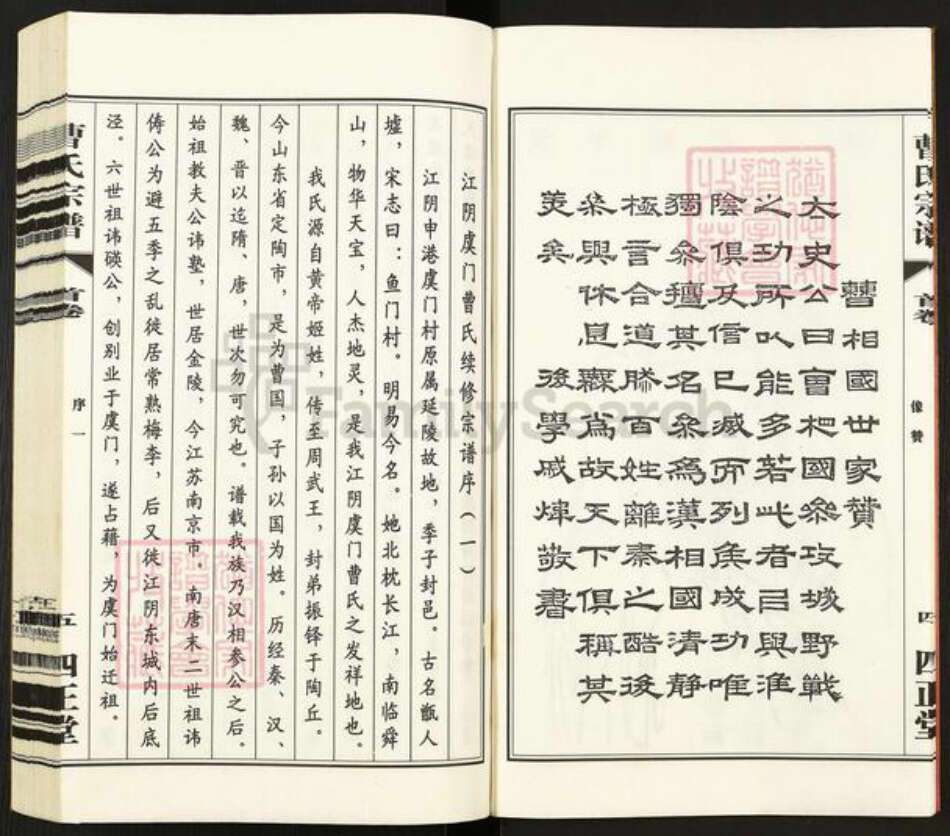 曹氏宗谱 首卷 像赞 四 四正堂
曹相國世家贊
太史公曰曹相國參攻城野戰
之功所以能多若此者以與淮
陰俱及信已滅而列矦成功唯
獨參擅其名參為漢相國清靜
極言合道然百姓離秦之酷後
參與休息無為故天下俱稱其
美矣 後學戚煒敬書
江阴虞门曹氏续修宗谱序（一）
江阴申港虞门村原属延陵故地，季子封邑。古名甑人
墟，宋志曰：鱼门村。明易今名。她北枕长江，南临舜
山，物华天宝，人杰地灵，是我江阴虞门曹氏之发祥地也。
我氏源自黄帝姬姓，传至周武王，封弟振铎于陶丘。
今山东省定陶市，是为曹国，子孙以国为姓。历经秦、汉、
魏、晋以迄隋、唐，世次勿可究也。谱载我族乃汉相参公之后。
始祖教夫公讳塾，世居金陵，今江苏南京市。南唐末二世祖讳
俦公为避五季之乱徙居常熟梅李，后又徙江阴东城内后底
泾。六世祖讳磺公，创别业于虞门，遂占籍，为虞门始迁祖。
曹氏宗谱 首卷 序一 五 四正堂
FamilySearch